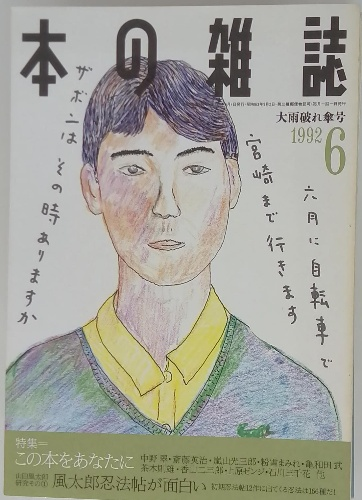 本の雑誌
大雨破れ傘号
1992 6
六月に自転車で
宮崎まで行きます
ザボンは その時ありますか
特集=
この本をあなたに
中野翠・斎藤英治・嵐山光三郎・粉雪まみれ・亀和田武
茶木則雄・香山二三郎・上原ゼンジ・石川三千花 他
風太郎忍法帖が面白い